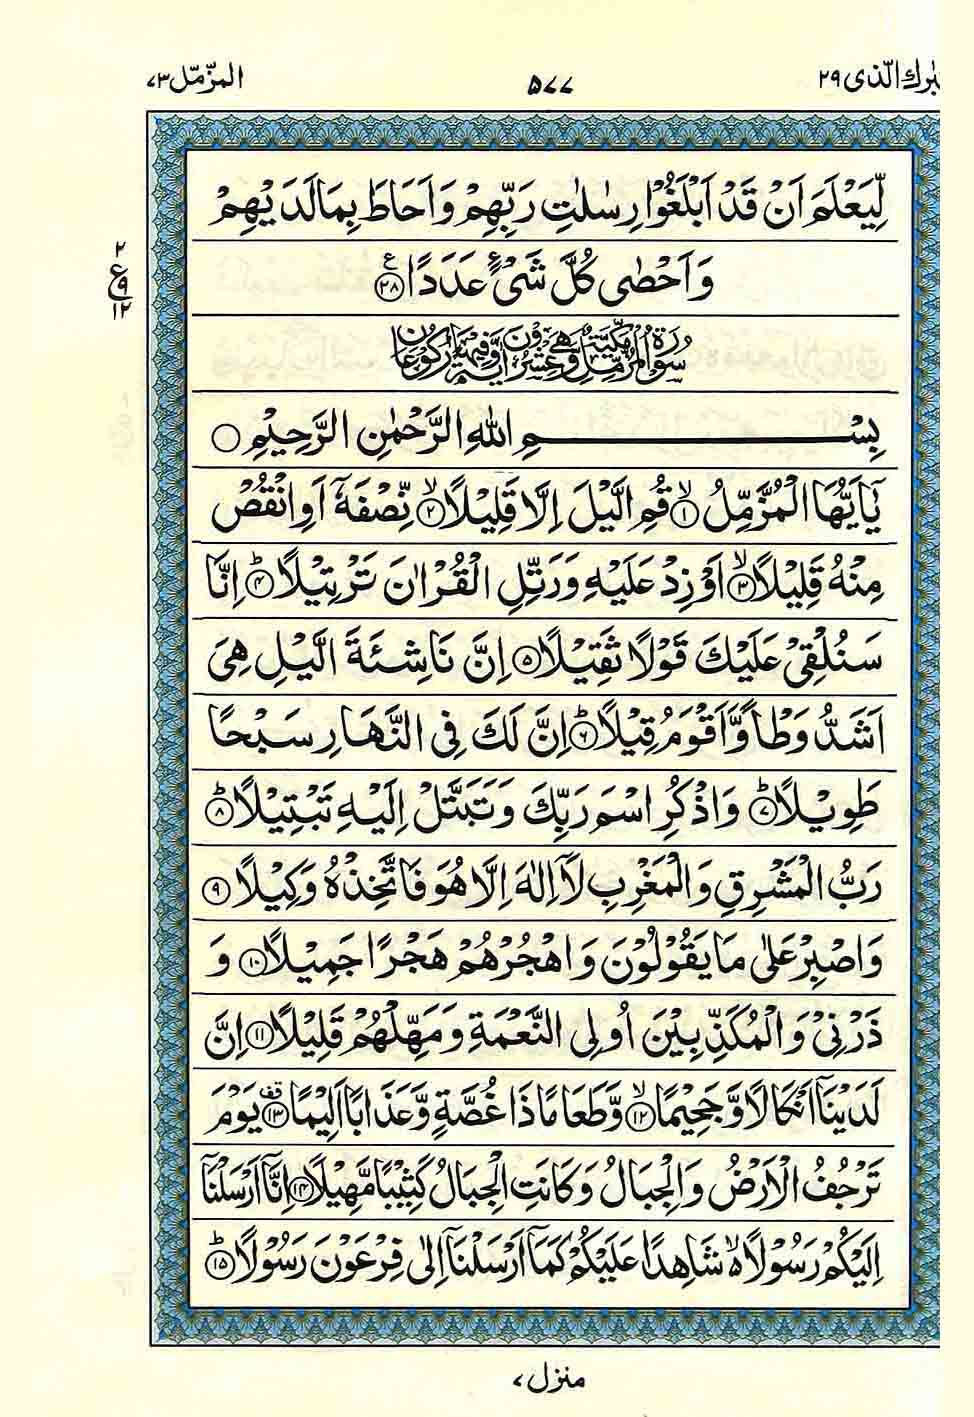 تبٰرك الّذی ۲۹
۵۷۷
المزّمّل ۷۳
لِّیَعْلَمَ اَنْ قَدْ اَبْلَغُوْا رِسٰلٰتِ رَبِّهِمْ وَاَحَاطَ بِمَا لَدَیْهِمْ
وَاَحْصٰی كُلَّ شَیْءٍ عَدَدًا ﴿۲۸﴾ ع
۲
ع ۹
۱۲
سُوْرَةُ الْمُزَّمِّلِ مَكِّیَّةٌ وَّهِیَ عِشْرُوْنَ اٰیَةً وَّفِیْهَا رُكُوْعَانِ
بِسْمِ اللّٰهِ الرَّحْمٰنِ الرَّحِیْمِ
یٰۤاَیُّهَا الْمُزَّمِّلُ ﴿۱﴾ۙ قُمِ الَّیْلَ اِلَّا قَلِیْلًا ﴿۲﴾ۙ نِّصْفَهٗۤ اَوِ انْقُصْ
مِنْهُ قَلِیْلًا ﴿۳﴾ۙ اَوْ زِدْ عَلَیْهِ وَرَتِّلِ الْقُرْاٰنَ تَرْتِیْلًا ﴿۴﴾ؕ اِنَّا
سَنُلْقِیْ عَلَیْكَ قَوْلًا ثَقِیْلًا ﴿۵﴾ اِنَّ نَاشِئَةَ الَّیْلِ هِیَ
اَشَدُّ وَطْاً وَّاَقْوَمُ قِیْلًا ﴿۶﴾ؕ اِنَّ لَكَ فِی النَّهَارِ سَبْحًا
طَوِیْلًا ﴿۷﴾ؕ وَاذْكُرِ اسْمَ رَبِّكَ وَتَبَتَّلْ اِلَیْهِ تَبْتِیْلًا ﴿۸﴾ؕ
رَبُّ الْمَشْرِقِ وَالْمَغْرِبِ لَاۤ اِلٰهَ اِلَّا هُوَ فَاتَّخِذْهُ وَكِیْلًا ﴿۹﴾
وَاصْبِرْ عَلٰی مَا یَقُوْلُوْنَ وَاهْجُرْهُمْ هَجْرًا جَمِیْلًا ﴿۱۰﴾ وَ
ذَرْنِیْ وَالْمُكَذِّبِیْنَ اُولِی النَّعْمَةِ وَمَهِّلْهُمْ قَلِیْلًا ﴿۱۱﴾ اِنَّ
لَدَیْنَاۤ اَنْكَالًا وَّجَحِیْمًا ﴿۱۲﴾ۙ وَّطَعَامًا ذَا غُصَّةٍ وَّعَذَابًا اَلِیْمًا ﴿۱۳﴾قف یَوْمَ
تَرْجُفُ الْاَرْضُ وَالْجِبَالُ وَكَانَتِ الْجِبَالُ كَثِیْبًا مَّهِیْلًا ﴿۱۴﴾ اِنَّاۤ اَرْسَلْنَاۤ
اِلَیْكُمْ رَسُوْلًا ۙ۬ شَاهِدًا عَلَیْكُمْ كَمَاۤ اَرْسَلْنَاۤ اِلٰی فِرْعَوْنَ رَسُوْلًا ﴿۱۵﴾ؕ
منزل ۷